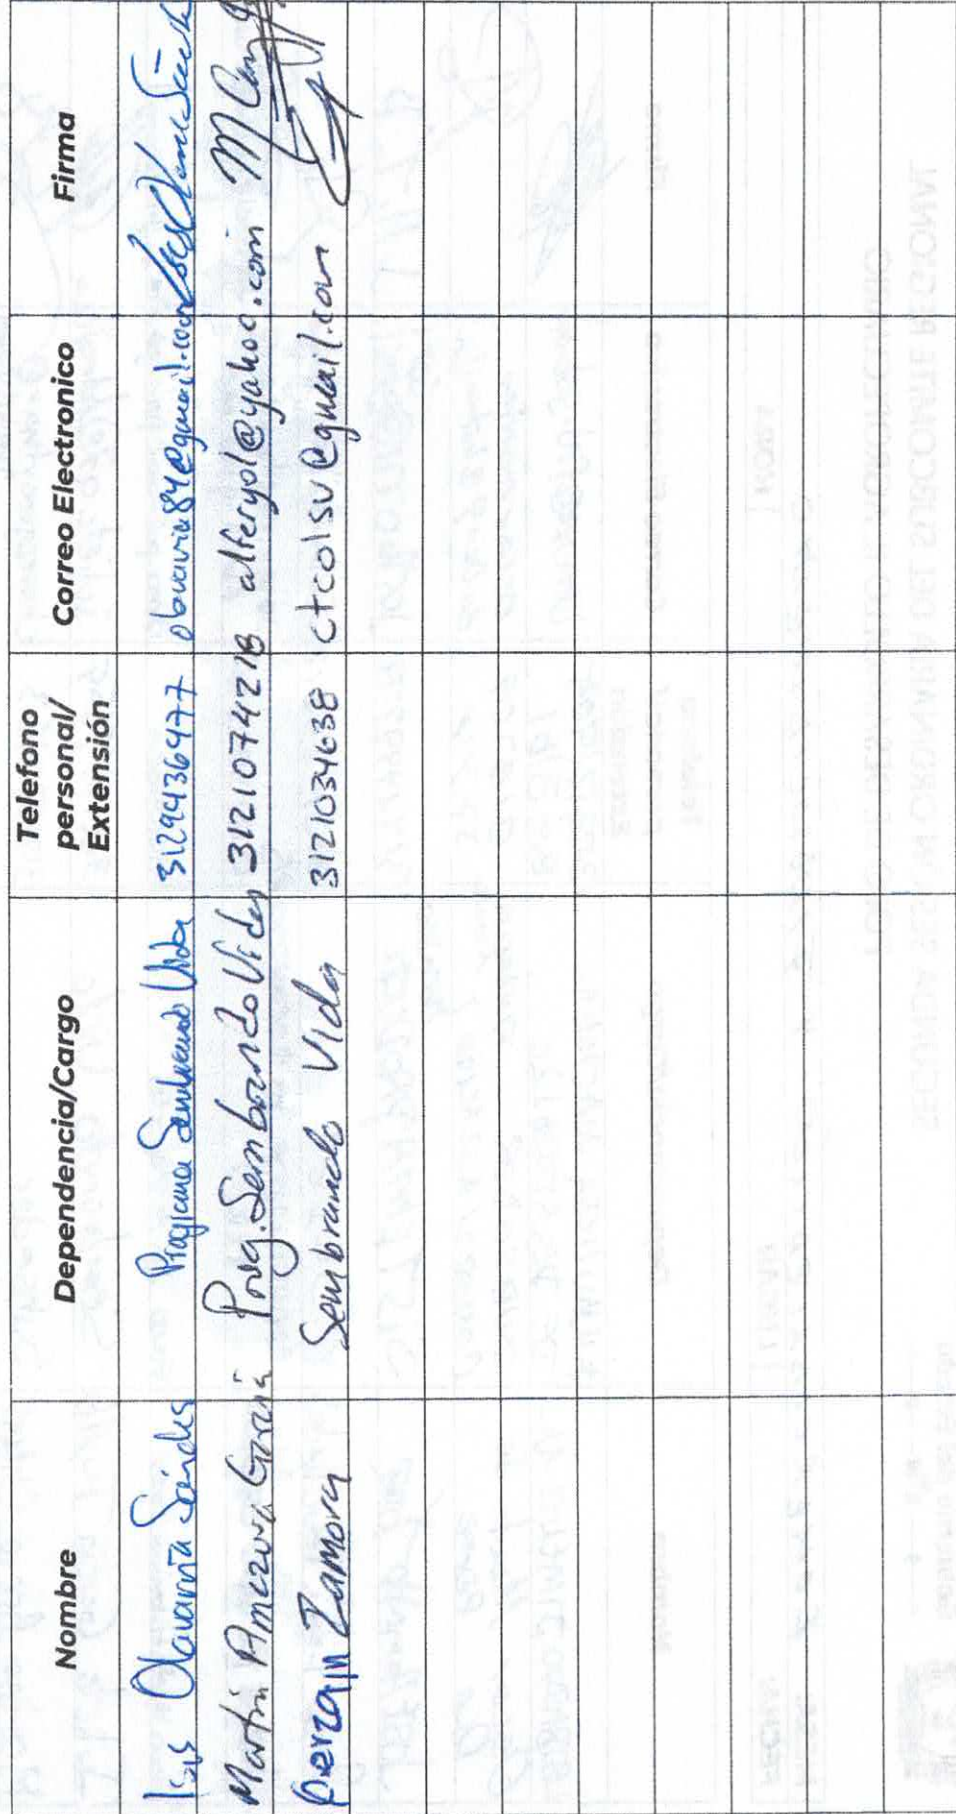 Nombre Dependencia/Cargo Telefono personal/ Extensión Correo Electronico Firma
Isis Olavarría Sánchez Programa Sembrando Vida 3129436477 olavarria84@gmail.com
Martín Amezcua García Prog. Sembrando Vida 3121074218 alferyol@yahoo.com
Zamora Sembrando Vida 3121034638 ctcolsv@gmail.com